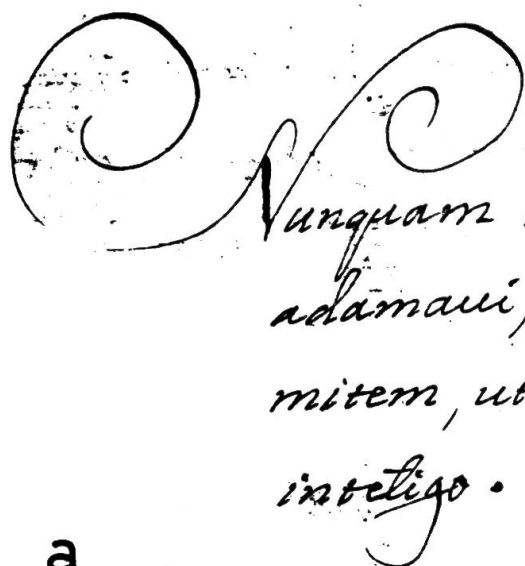 Nunquam
adamaui,
mitem, ut
inteligo.
a